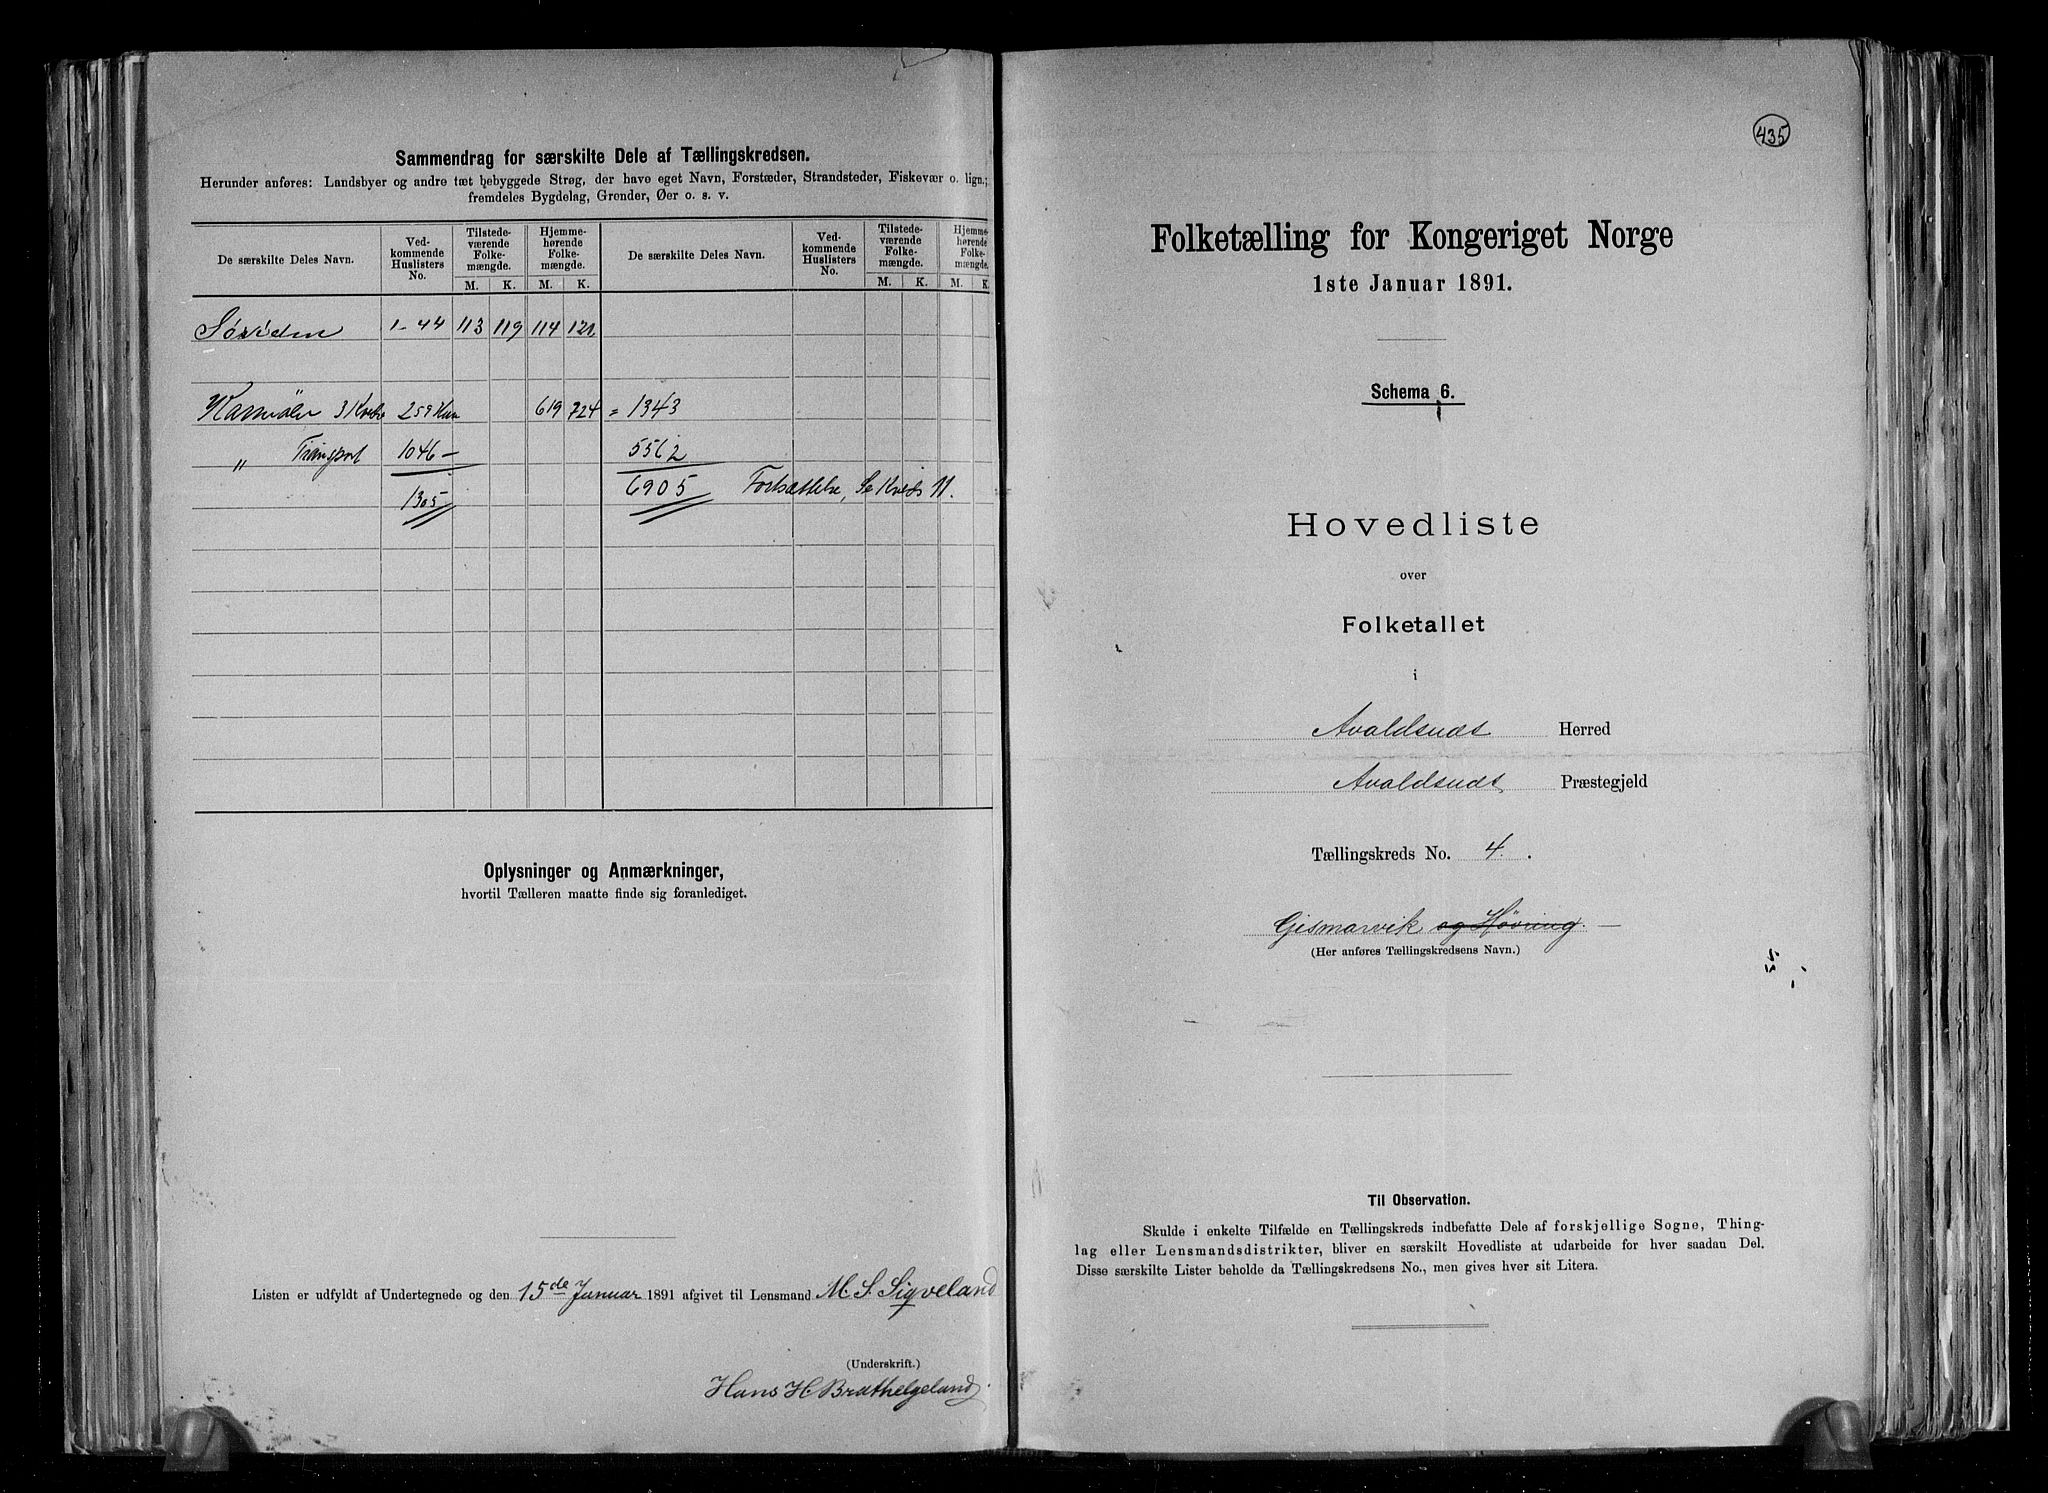 Sammendrag for særskilte Dele af Tællingskredsen.
Herunder anføres: Landsbyer og andre tæt bebyggede Strøg, der have eget Navn, Forstæder, Strandsteder, Fiskevær o. lign.;
fremdeles Bygdelag, Grender, Øer o. s. v.
De særskilte Deles Navn. Ved-kommende Huslisters No. Tilstede-værende Folke-mængde. Hjemme-hørende Folke-mængde. De særskilte Deles Navn. Ved-kommende Huslisters No. Tilstede-værende Folke-mængde. Hjemme-hørende Folke-mængde.
M. K. M. K. M. K. M. K.
1-44 113 119 114 121
3 259 619 724 = 1343
" Transport 1046 - 5562
1305 6905 Fortsættelse, Se Kreds 11.
Oplysninger og Anmærkninger,
hvortil Tælleren maatte finde sig foranlediget.
Listen er udfyldt af Undertegnede og den 15de Januar 1891 afgivet til Lensmand M. S. Sigveland
(Underskrift.)
Hans H. Bratthelgeland.
435
Folketælling for Kongeriget Norge
1ste Januar 1891.
Schema 6.
Hovedliste
over
Folketallet
i
Avaldsnæs Herred
Avaldsnæs Præstegjeld
Tællingskreds No. 4.
Gismarvik og Høvring.
(Her anføres Tællingskredsens Navn.)
Til Observation.
Skulde i enkelte Tilfælde en Tællingskreds indbefatte Dele af forskjellige Sogne, Thing-
lag eller Lensmandsdistrikter, bliver en særskilt Hovedliste at udarbeide for hver saadan Del.
Disse særskilte Lister beholde da Tællingskredsens No., men gives hver sit Litera.